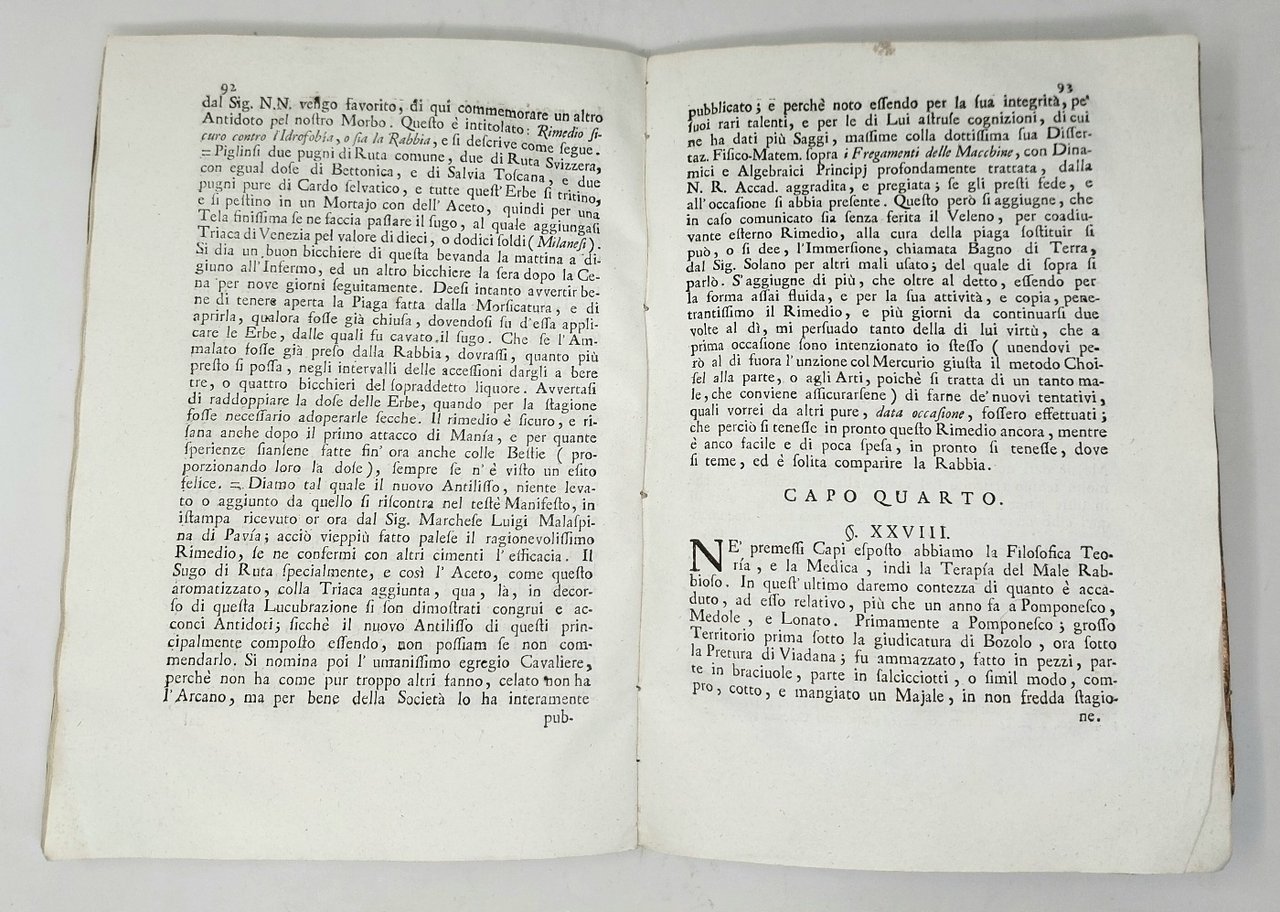 92
dal Sig. N.N. vengo favorito, di qui commemorare un altro
Antidoto pel nostro Morbo. Queſto è intitolato: Rimedio ſi-
curo contro l'Idrofobia, o ſia la Rabbia, e ſi deſcrive come ſegue.
=Piglinſi due pugni di Ruta comune, due di Ruta Svizzera,
con egual doſe di Bettonica, e di Salvia Toſcana, e due
pugni pure di Cardo ſelvatico, e tutte queſt'Erbe ſi tritino,
e ſi peſtino in un Mortajo con dell' Aceto, quindi per una
Tela finiſſima ſe ne faccia paſſare il ſugo, al quale aggiungaſi
Triaca di Venezia pel valore di dieci, o dodici ſoldi (Milaneſi).
Si dia un buon bicchiere di queſta bevanda la mattina a di-
giuno all'Infermo, ed un altro bicchiere la ſera dopo la Ce-
na per nove giorni ſeguitamente. Deeſi intanto avvertir be-
ne di tenere aperta la Piaga fatta dalla Morſicatura, e di
aprirla, qualora foſſe già chiuſa, dovendoſi ſu d'eſſa appli-
care le Erbe, dalle quali fu cavato il ſugo. Che ſe l'Am-
malato foſſe già preſo dalla Rabbia, dovraſſi, quanto più
preſto ſi poſſa, negli intervalli delle acceſſioni dargli a bere
tre, o quattro bicchieri del ſopraddetto liquore. Avvertaſi
di raddoppiare la doſe delle Erbe, quando per la ſtagione
foſſe neceſſario adoperarle ſecche. Il rimedio è ſicuro, e ri-
ſana anche dopo il primo attacco di Manía, e per quante
ſperienze ſianſene fatte fin' ora anche colle Beſtie (pro-
porzionando loro la doſe), ſempre ſe n' è viſto un eſito
felice. =. Diamo tal quale il nuovo Antiliſſo, niente leva-
to o aggiunto da quello ſi riſcontra nel teſtè Manifeſto, in
iſtampa ricevuto or ora dal Sig. Marcheſe Luigi Malaſpi-
na di Pavía; acciò vieppiù fatto paleſe il ragionevoliſſimo
Rimedio, ſe ne confermi con altri cimenti l'efficacia. Il
Sugo di Ruta ſpecialmente, e così l' Aceto, come queſto
aromatizzato, colla Triaca aggiunta, qua, là, in decor-
ſo di queſta Lucubrazione ſi ſon dimoſtrati congrui e ac-
conci Antidoti; ſicchè il nuovo Antiliſſo di queſti prin-
cipalmente compoſto eſſendo, non poſſiam ſe non com-
mendarlo. Si nomina poi l' umaniſſimo egregio Cavaliere,
perchè non ha come pur troppo altri fanno, celato non ha
l'Arcano, ma per bene della Società lo ha interamente
pub-
93
pubblicato; e perchè noto eſſendo per la ſua integrità, pe'
ſuoi rari talenti, e per le di Lui aſtruſe cognizioni, di cui
ne ha dati più Saggi, maſſime colla dottiſſima ſua Diſſer-
taz. Fiſico-Matem. ſopra i Fregamenti delle Macchine, con Dina-
mici e Algebraici Principj profondamente trattata, dalla
N. R. Accad. aggradita, e pregiata; ſe gli preſti fede, e
all'occaſione ſi abbia preſente. Queſto però ſi aggiugne, che
in caſo comunicato ſia ſenza ferita il Veleno, per coadiu-
vante eſterno Rimedio, alla cura della piaga ſoſtituir ſi
può, o ſi dee, l'Immerſione, chiamata Bagno di Terra,
dal Sig. Solano per altri mali uſato; del quale di ſopra ſi
parlò. S'aggiugne di più, che oltre al detto, eſſendo per
la forma aſſai fluida, e per la ſua attività, e copia, pene-
trantiſſimo il Rimedio, e più giorni da continuarſi due
volte al dì, mi perſuado tanto della di lui virtù, che a
prima occaſione ſono intenzionato io ſteſſo (unendovi pe-
rò al di fuora l'unzione col Mercurio giuſta il metodo Choi-
ſel alla parte, o agli Arti, poichè ſi tratta di un tanto ma-
le, che conviene aſſicurarſene) di farne de' nuovi tentativi,
quali vorrei da altri pure, data occaſione, foſſero effettuati;
che perciò ſi teneſſe in pronto queſto Rimedio ancora, mentre
è anco facile e di poca ſpeſa, in pronto ſi teneſſe, dove
ſi teme, ed è ſolita comparire la Rabbia.
CAPO QUARTO.
§. XXVIII.
NE' premeſſi Capi eſpoſto abbiamo la Filoſofica Teo-
ría, e la Medica, indi la Terapía del Male Rab-
bioſo. In queſt'ultimo daremo contezza di quanto è acca-
duto, ad eſſo relativo, più che un anno fa a Pomponeſco,
Medole, e Lonato. Primamente a Pomponeſco; groſſo
Territorio prima ſotto la giudicatura di Bozolo, ora ſotto
la Pretura di Viadana; fu ammazzato, fatto in pezzi, par-
te in braciuole, parte in ſalcicciotti, o ſimil modo, com-
pro, cotto, e mangiato un Majale, in non fredda ſtagio-
ne.